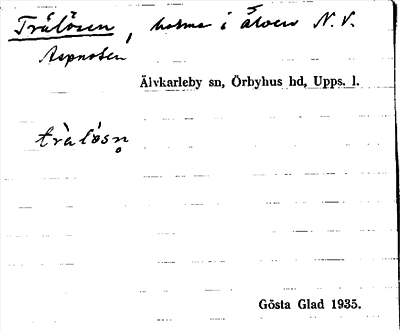 Trålösen, holme i älven N.V.
Aspnoten
Älvkarleby sn, Örbyhus hd, Upps. l.
trà lósn̥
Gösta Glad 1935.